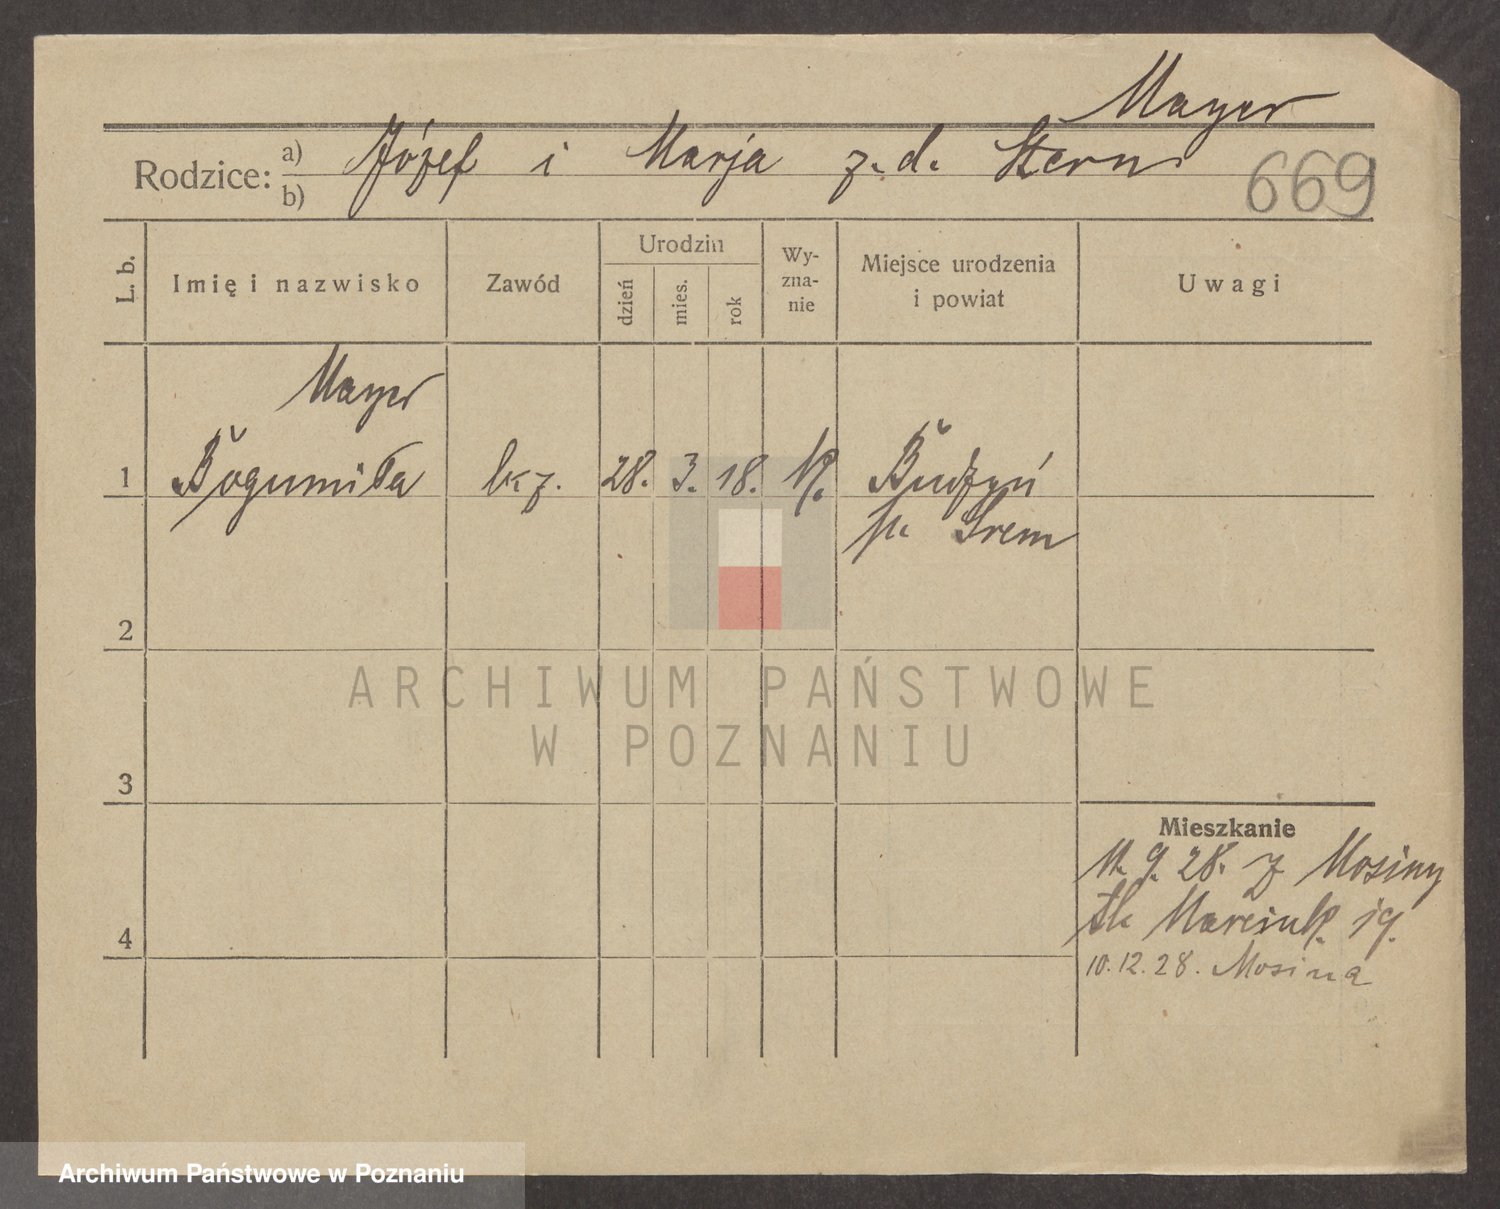 Mayer
Rodzice: a) Józef i Marja z. d. Stern
b)
669
L. b.
Imię i nazwisko
Zawód
Urodzin
dzień
mies.
rok
Wy-
zna-
nie
Miejsce urodzenia
i powiat
Uwagi
Mayer
1 Bogumiła b. z. 28. 3. 18. kp. Budzyń
p. Śrem
2
3
4
Mieszkanie
11. 9. 28. z Mosiny
tk. Marcink. 19.
10. 12. 28. Mosina
ARCHIWUM PAŃSTWOWE
W POZNANIU
Archiwum Państwowe w Poznaniu